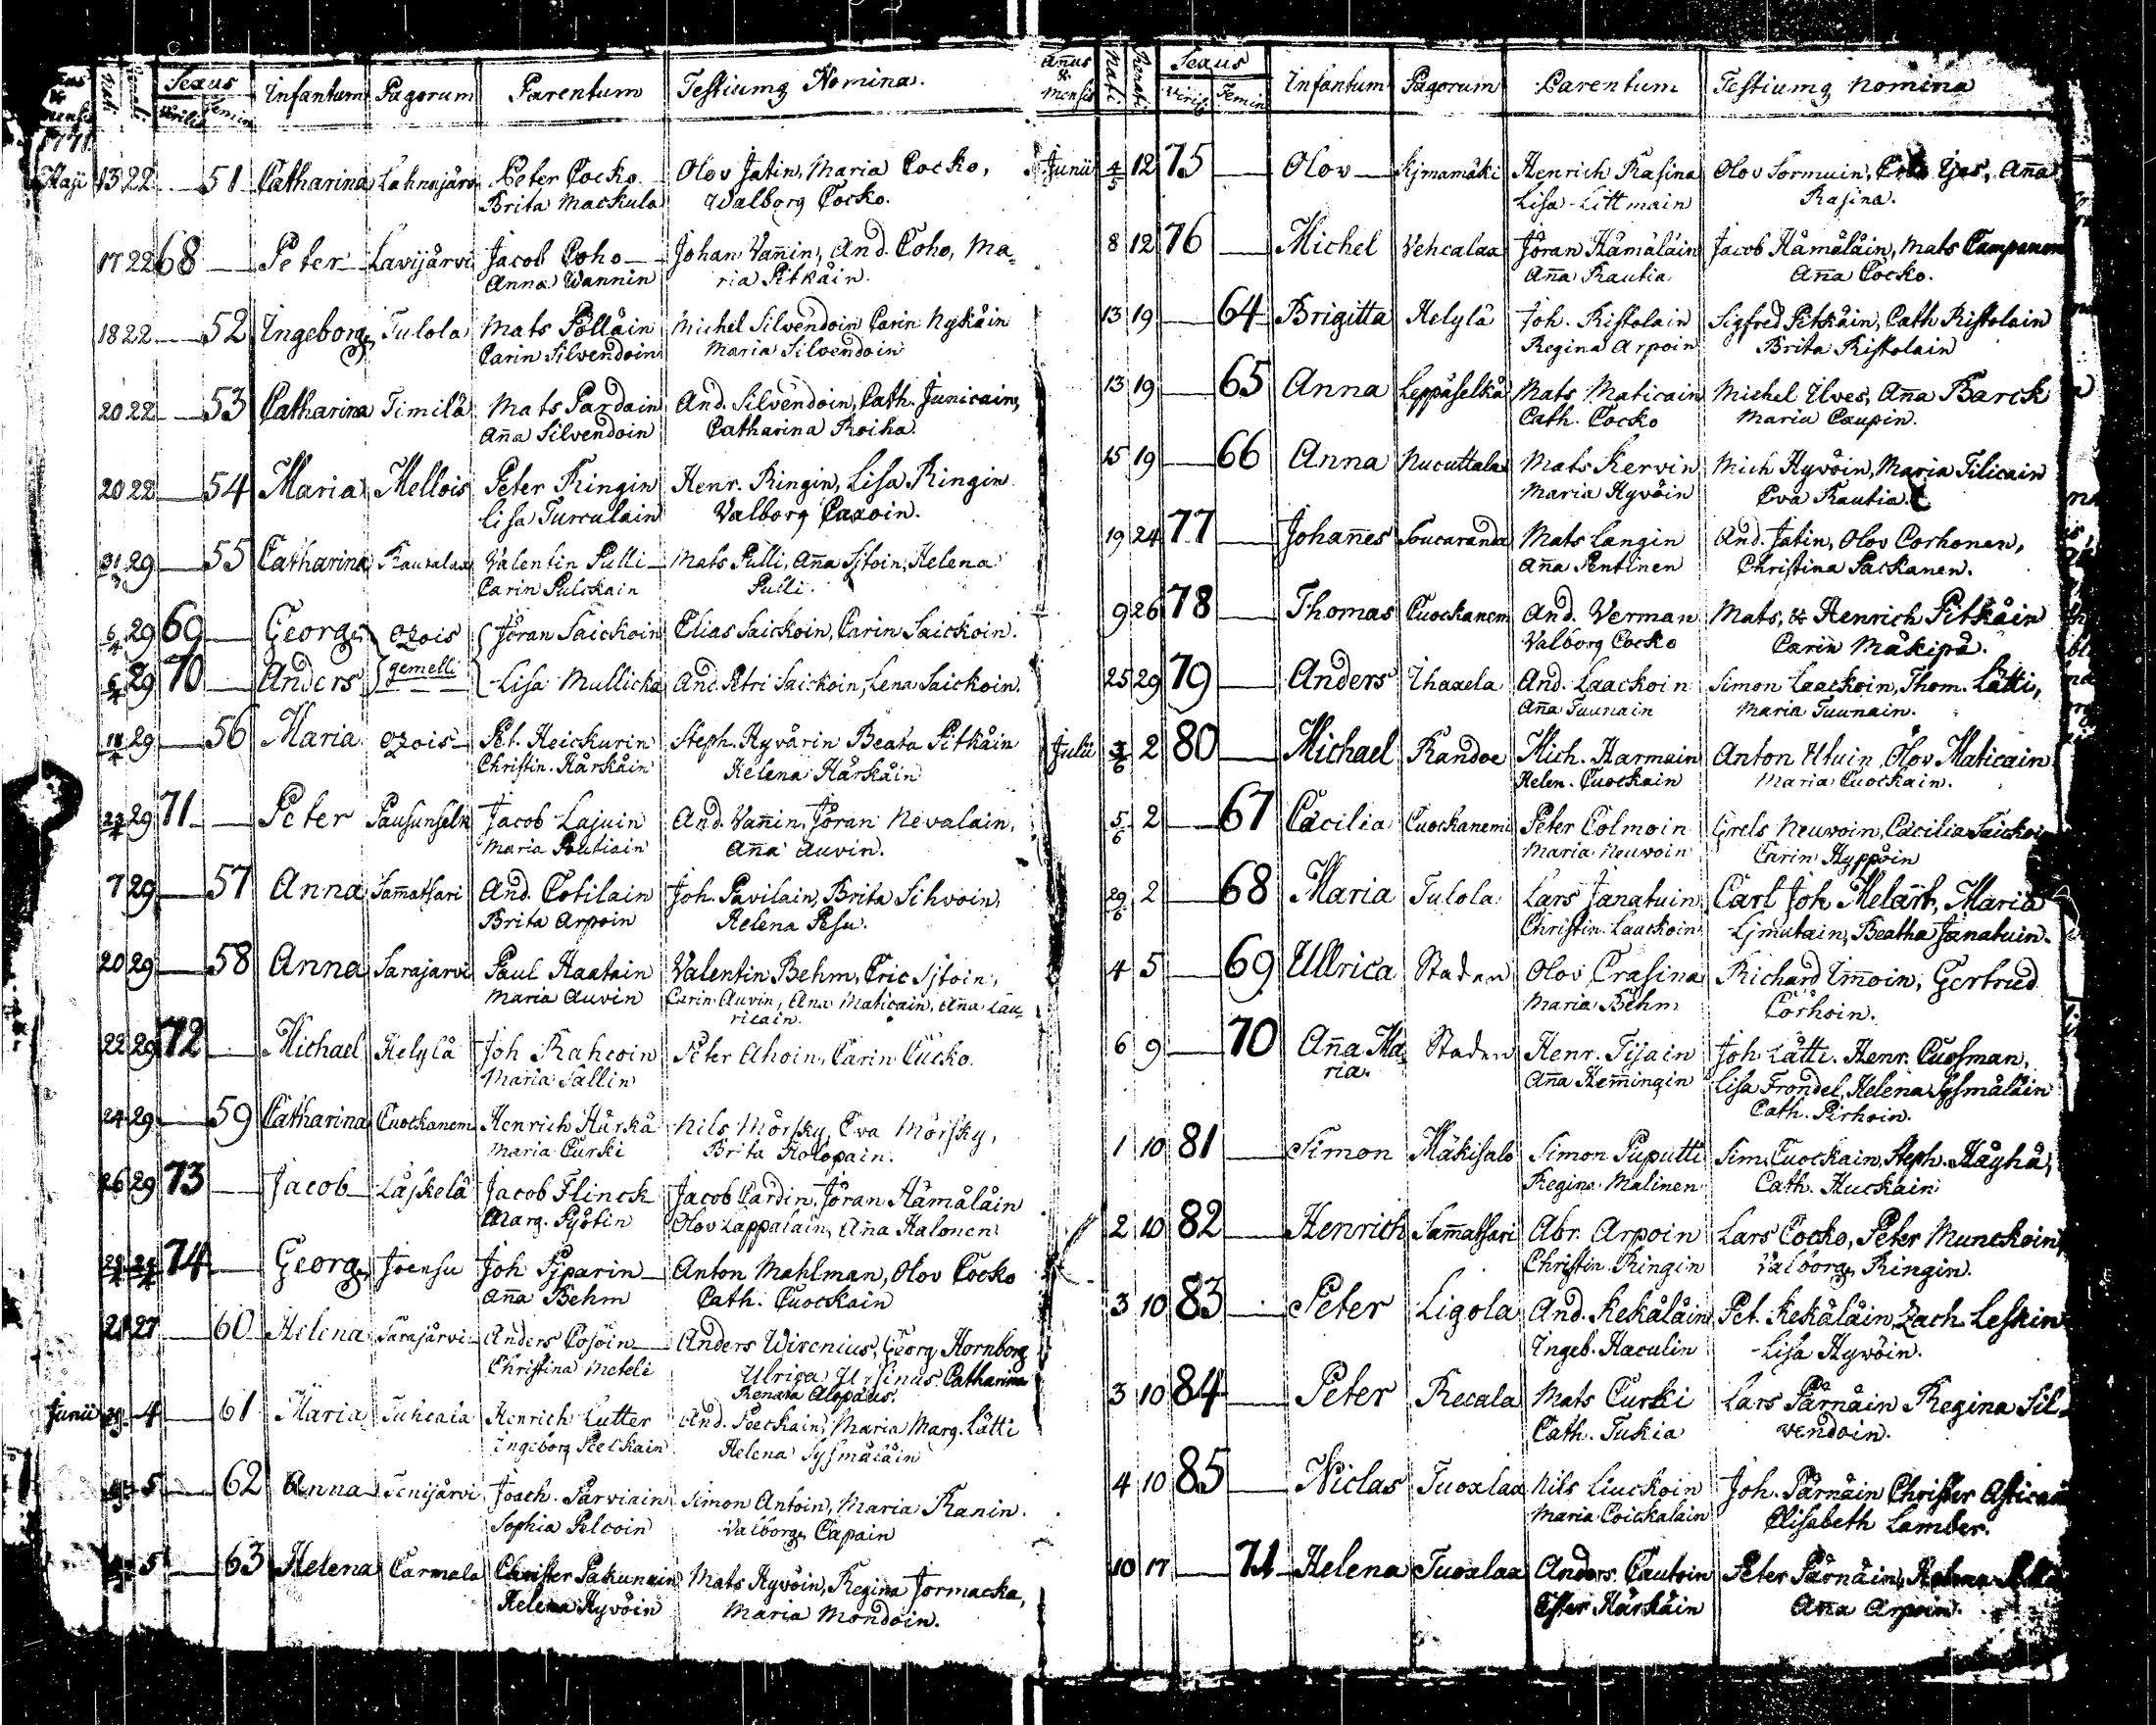 Nati Renati Sexus Infantum Pagorum Parentum Testiumq Nomina.
mensis Virilis Femin
1771
Maji 13 22 51 Catharina Lahnajärv Peter Cocko Olov Jatin, Maria Cocko,
Brita Mackula Walborg Cocko.
17 22 68 Peter Lavijärvi Jacob Coho Johan Vañin, And. Coho, Ma=
Anna Wannin ria Pitkäin.
18 22 52 Ingeborg Tulola Mats Pölläin Michel Silvendoin Carin Nykäin
Carin Silvendoin Maria Silvendoin
20 22 53 Catharina Timilä Mats Pardain And. Silvendoin, Cath. Junicain,
Aña Silvendoin Catharina Roiha.
20 22 54 Maria Mellois Peter Ringin Henr. Ringin, Lisa Ringin
Lisa Turculain Valborg Caxoin.
31/3 29 55 Catharina Rautalax Valentin Pulli Mats Pulli, Aña Sitoin, Helena
Carin Pulckain Pulli.
6/4 29 69 Georg Ozois Jöran Saickoin Elias Saickoin, Carin Saickoin.
6/4 29 70 Anders gemelli Lisa Mullicka And. Petri Saickoin, Lena Saickoin.
18/4 29 56 Maria Ozois Pet. Heickurin Steph. Hyvärin Beata Pitkäin
Christin. Härkäin Helena Härkäin
23/4 29 71 Peter Pausunselk Jacob Lajuin And. Vañin, Jöran Nevalain,
Maria Poutiain Aña Auvin.
7 29 57 Anna Sam̃atsari And. Cotilain Joh. Pavilain, Brita Sihvoin,
Brita Arpoin Helena Pesu.
20 29 58 Anna Sarajarvi Paul Haatain Valentin Behm, Eric Sjtoin,
Maria Auvin Carin Auvin, Ana Maticain, Aña Lau=
ricain.
22 29 72 Michael Helylä Joh Rahcoin Peter Ahoin, Carin Cucko.
Maria Sallin
24 29 59 Catharina Cuockanem Henrich Härkä Nils Mörsky, Eva Mörsky,
Maria Curki Brita Holopain.
26 29 73 Jacob Läskelä Jacob Flinck Jacob Cardin, Jöran Hämäläin
Marg. Pyötin Olov Lappalain, Aña Halonen
28/4 29/4 74 Georg Joensu Joh Sjparin Anton Mahlman, Olov Cocko
Aña Behm Cath. Cuockain
21 27 60 Helena Sarajärvi Anders Cojoin Anders Wirenius, Georg Hornborg
Christina Meteli Ulrica Ursinus Catharina
Renata Alopæus.
Junii 4 61 Maria Tuhcala Henrich Lutter And. Poeckain, Maria Marg. Lätti
Ingeborg Peelkain Helena Sysmäläin
5 62 Anna Tenijärvi Joach. Parviain Simon Antoin, Maria Ranin.
Sophia Pelcoin Valborg Capain
5 63 Helena Carmala Christer Pakunain Mats Hyvöin, Regina Jormacka,
Helena Hyvöin Maria Mondoin.
Añus & mensis Nati Renati Sexus Infantum Pagorum Parentum Testiumq Nomina
Virilis Femin
Junii 4/5 12 75 Olov Kjmamäki Henrich Rasina Olov Sormuin, Aña
Lisa Littmain Rasina.
8 12 76 Michel Vehcalax Jöran Hämäläin Jacob Hämäläin, Mats Campanen
Aña Rautia Aña Cocko.
13 19 64 Brigitta Helylä Joh. Ristolain Sigfred Pitkäin, Cath Ristolain
Regina Arpoin Brita Ristolain
13 19 65 Anna Leppäselkä Mats Maticain Michel Ilves, Aña Barck
Cath. Cocko Maria Caupin.
15 19 66 Anna Nucuttalax Mats Kervin Mich Hyvöin, Maria Tilicain
Maria Hyvöin Eva Rautia.
19 24 77 Johañes Soucaranda Mats Langin And. Jatin, Olov Corhonen,
Aña Pentinen Christina Packanen.
9 26 78 Thomas Cuockanem And. Verman Mats, & Henrich Pitkäin
Valborg Cocko Carin Mäkipä.
25 29 79 Anders Ihaxela And. Laackoin Simon Laackoin, Thom. Lätti,
Aña Tuunain Maria Tuunain.
Julii 3/6 2 80 Michael Randoe Mich. Harmain Anton Utuin, Olov Maticain
Helen. Cuockain Maria Cuockain.
5/6 2 67 Cæcilia Cuockanemi Peter Colmoin Grels Neuvoin, Cæcilia Saickoin
Maria Neuvoin Carin Hyppöin
29/6 2 68 Maria Tulola Lars Janatuin Carl Joh Melart, Maria
Christin. Lauckoin Ljmatain, Beatha Janatuin.
4 5 69 Ullrica Staden Olov Crasina Richard Im̃oin, Gertrud
Maria Behm Corhoin.
6 9 70 Aña Ma= Staden Henr. Tijain Joh. Lätti. Henr. Cuosman,
ria. Aña Hem̃ingin Lisa Frondel, Helena Sysmäläin
Cath. Pirhoin.
1 10 81 Simon Mäkisalo Simon Puputti Sim. Cuockain, Steph. Häyhä,
Regina Malinen Cath. Huckain
2 10 82 Henrich Sam̃atsari Abr. Arpoin Lars Cocko, Peter Munckoin,
Christin Ringin Valborg Ringin.
3 10 83 Peter Ligola And. Kekäläin Pet. Kekäläin, Zach Leskin
Ingeb. Haculin Lisa Hyvöin.
3 10 84 Peter Recala Mats Curki Lars Pärnäin Regina Sil=
Cath. Tukia vendoin.
4 10 85 Niclas Tuoxlax Nils Liuckoin Joh. Pärnäin Christer Asticain
Maria Coickalain Elisabeth Lamber.
10 17 71 Helena Tuoxlax Anders Cautoin Peter Pärnäin, Helena
Ester Härkäin Aña Arpoin.